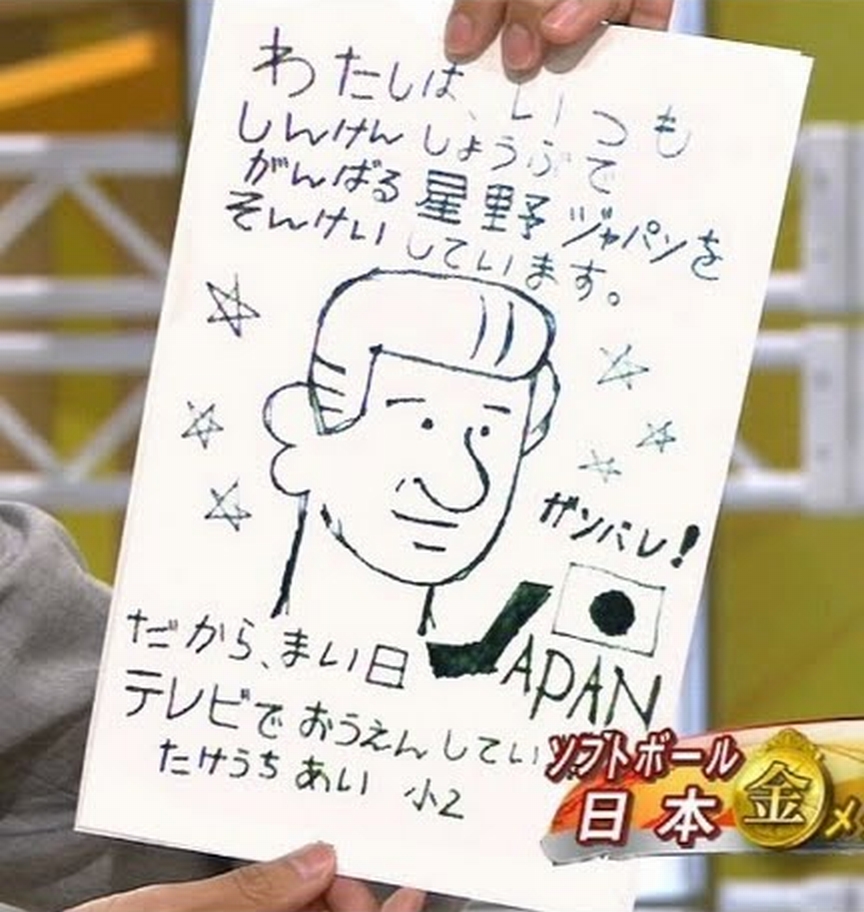 わたしは、いつも
しんけんしょうぶで
がんばる星野ジャパンを
そんけいしています。
ガンバレ!
JAPAN
だから、まい日
テレビでおうえんしてい
たけうちあい 小2
ソフトボール
日本金メ